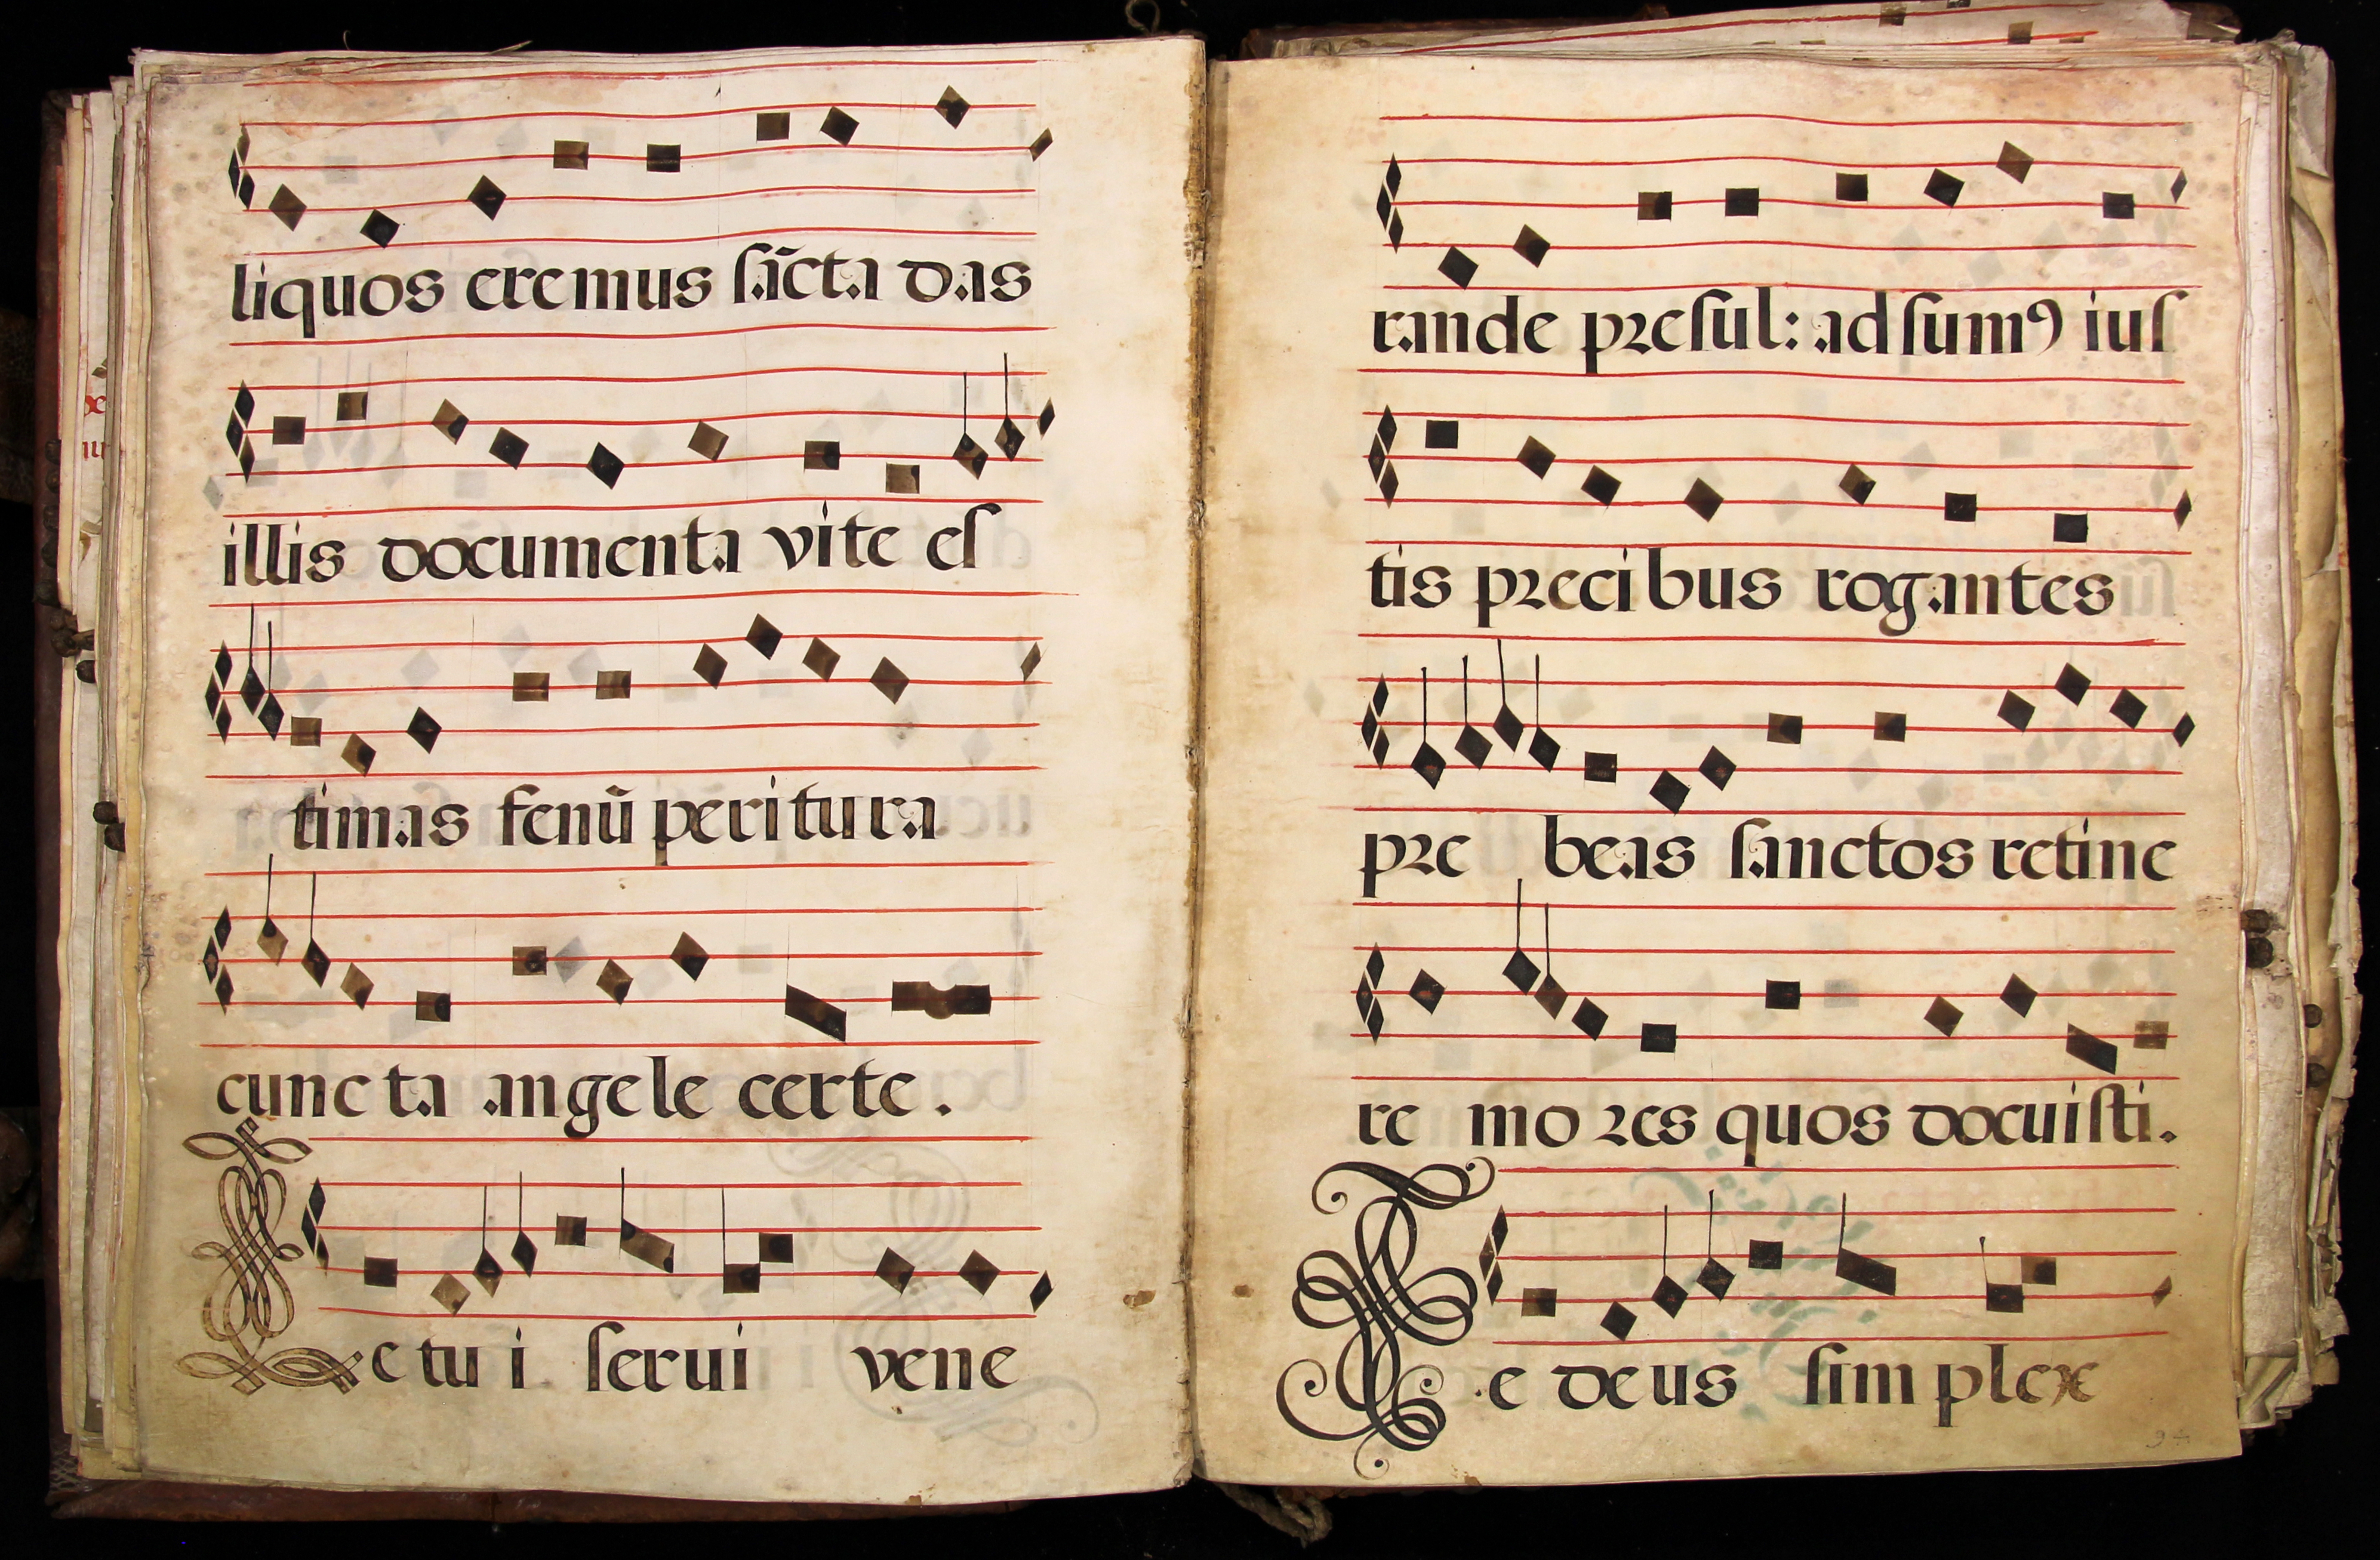 liquos eremus ſãcta das
illis documenta vite eſ
timas fenũ peritura
cuncta angele certe.
Le tui ſerui vene
rande preſul: adſumꝰ iuſ
tis precibus rogantes
pre beas ſanctos retine
re mores quos docuiſti.
Te deus ſimplex